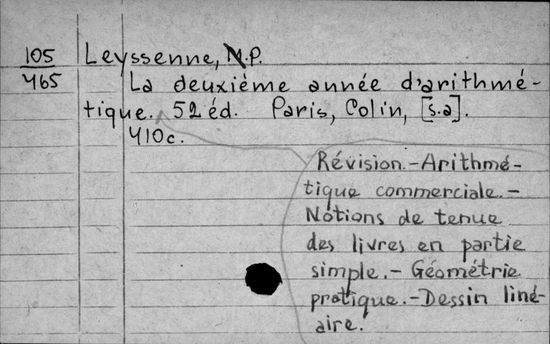 105
465
Leyssenne, P.
La deuxième année d'arithmé-
tique. 52 éd. Paris, Colin, [s.a].
410c.
Révision.-Arithmé-
tique commerciale.-
Notions de tenue
des livres en partie
simple.- Géométrie
pratique.-Dessin liné-
aire.